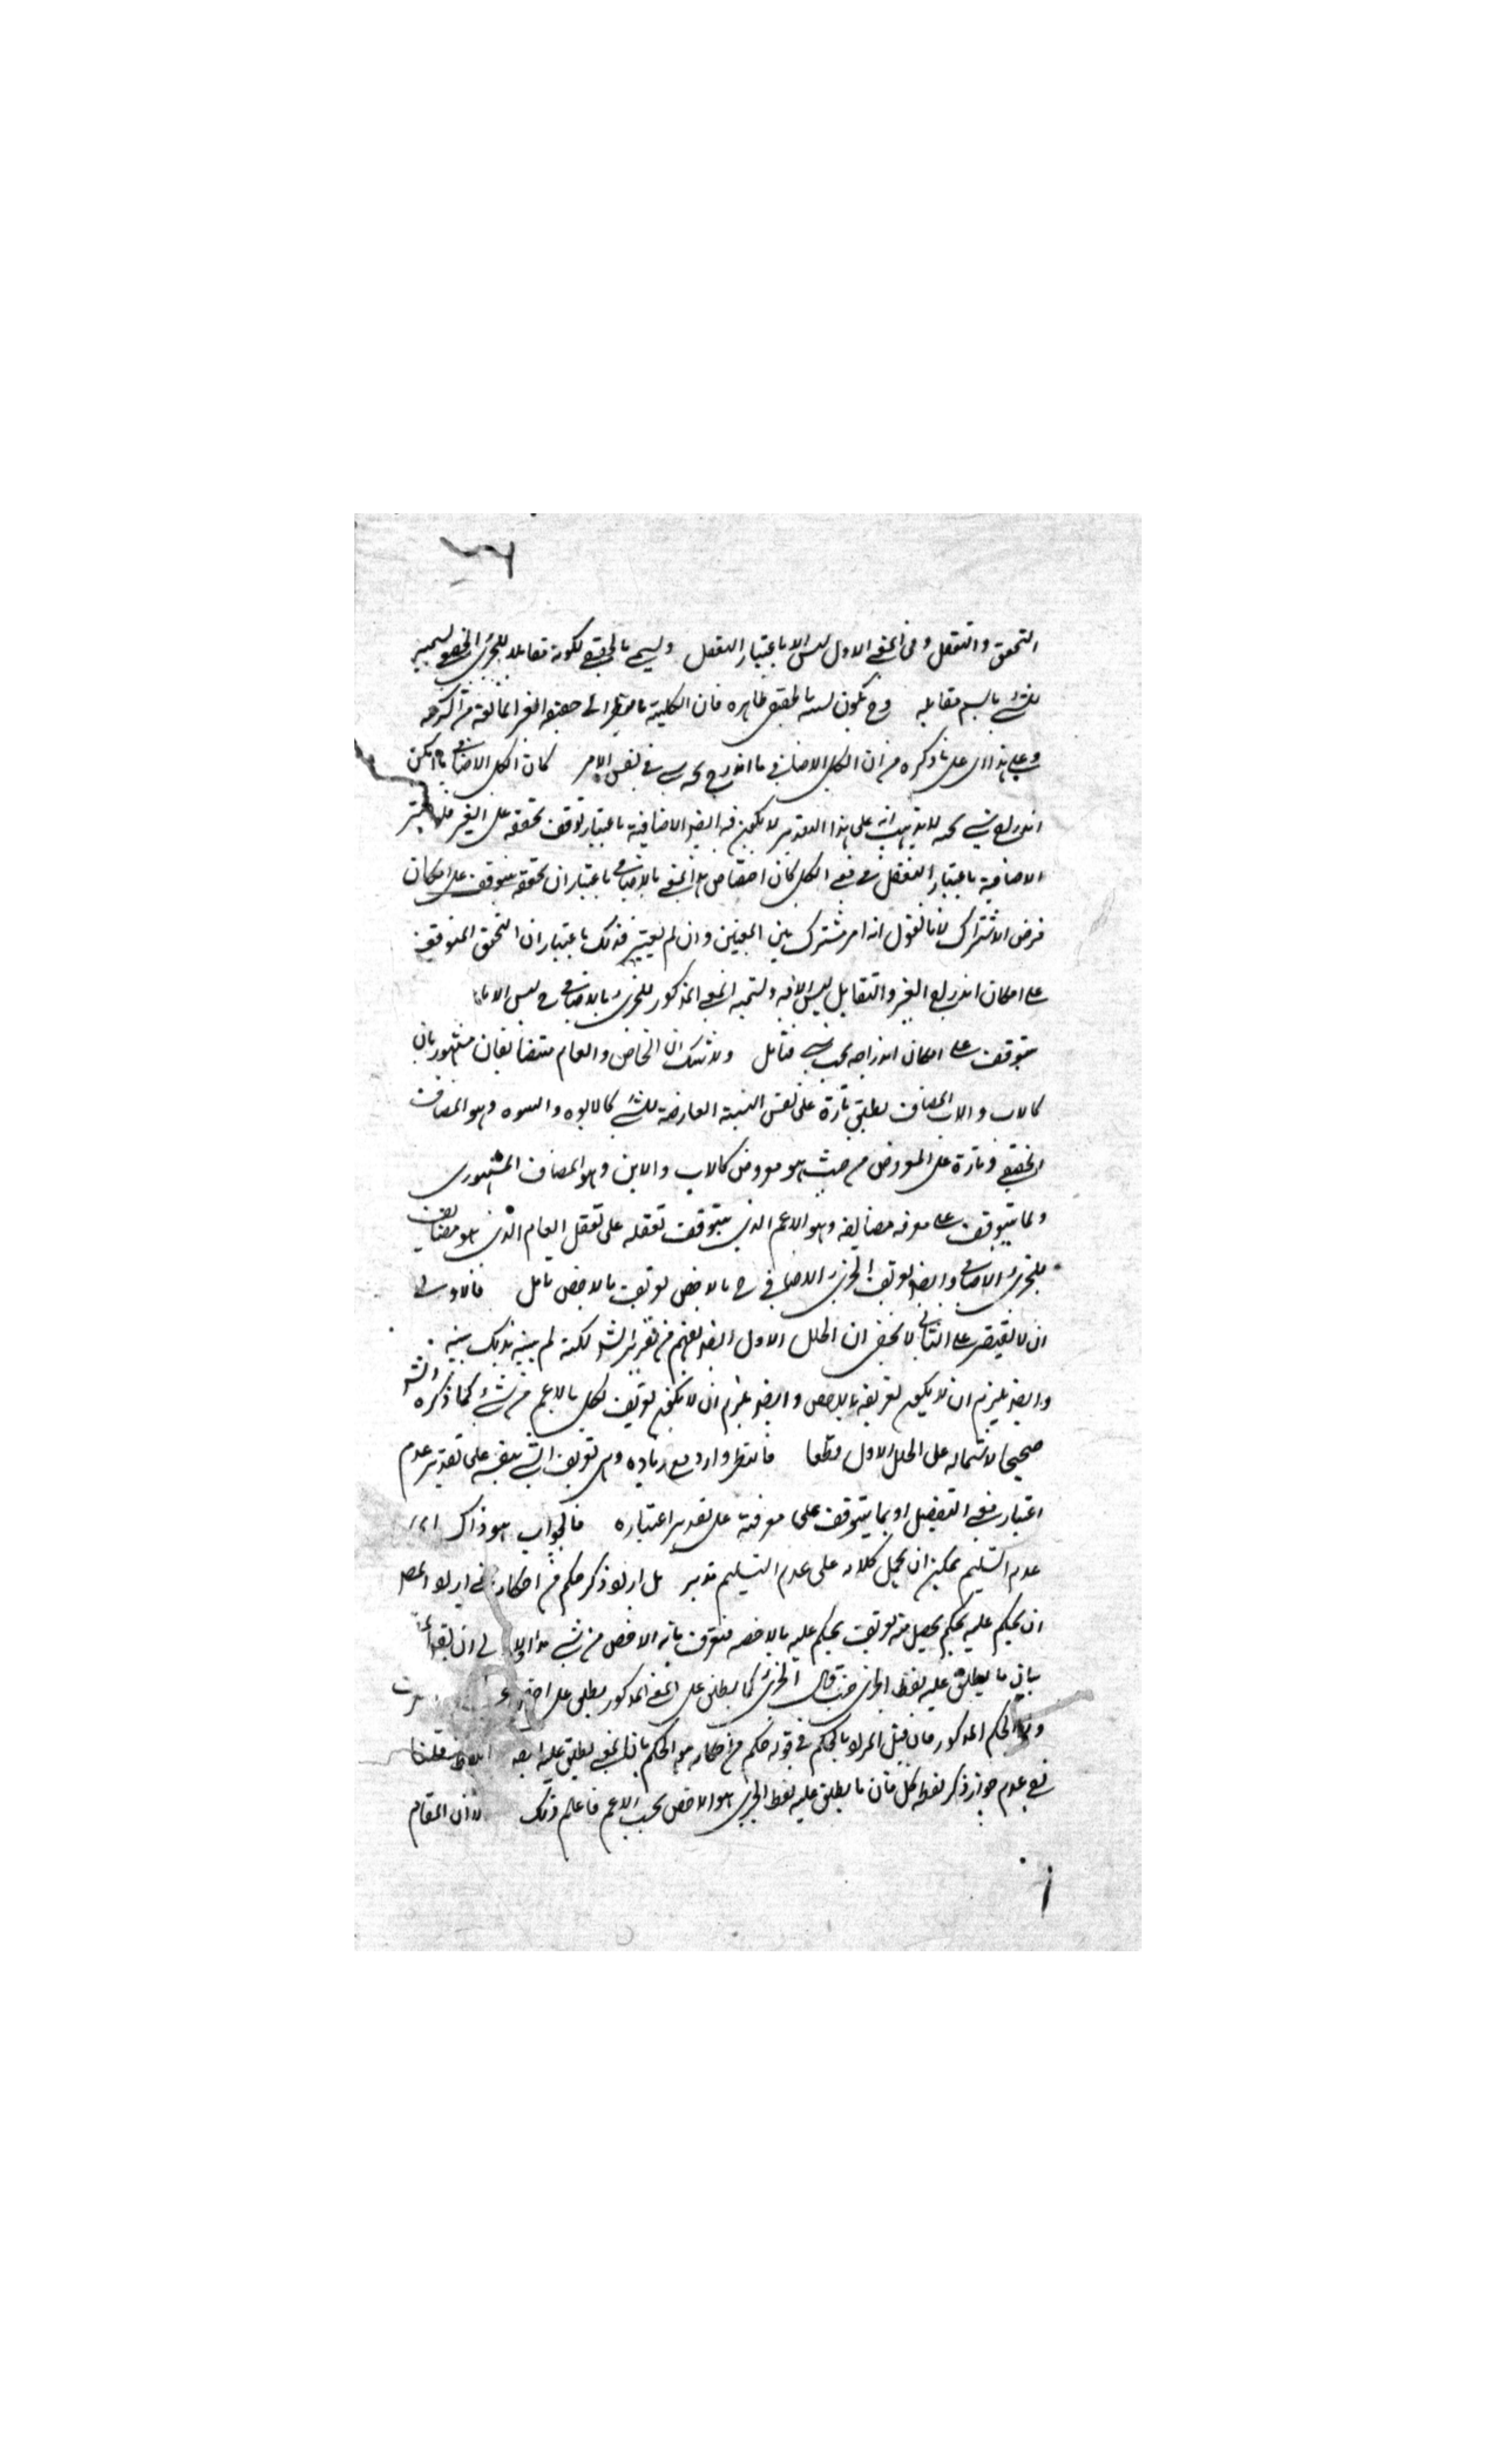 التحقق والتعقل وفى المعنى الاول ليس الا باعتبار التعقل ويسمى بالحقيقى لكونه مقابلا للجزئى الحقيقى تسمية
للشئ باسم مقابله وح يكون تسميته بالحقيقى ظاهره فان الكلية بالنظر الى حقيقته الغير المانعة من الشركة
وعلى هذا اى على ما ذكره من ان الكلى الاضافى ما اندرج تحته شئ فى نفس الامر كان الكلى الاضافى ما امكن
اندراج شئ تحته لا يذهب انه على هذا التقدير لا يكون فيه ايضا الاضافية باعتبار توقف تحققه على الغير فلو اعتبر
الاضافية باعتبار التعقل فى معنى الكلى كان اختصاص هذا المعنى بالاضافى باعتبار ان تحققه يتوقف على امكان
فرض الاشتراك لانا نقول انه امر مشترك بين المعنيين وان لم يعتبر فذلك باعتبار ان التحقق المتوقف
على امكان اندراج الغير والتقابل ليس الا فيه وتسمية المعنى المذكور للجزئى بالاضافى ح ليس الا
متوقف على امكان اندراجه تحت شئ فتأمل ولا شك ان الخاص والعام متضائفان مشهوريان
كالاب والابن المضاف يطلق تارة على نفس النسبة العارضة للشئ كالابوه والبنوه وهو المضاف
الحقيقى وتارة على المعروض من حيث هو معروض كالاب والابن وهو المضاف المشهورى
ولما يتوقف على معرفة مضايفه وهو الاعم الذى يتوقف تعقله على تعقل العام الذى هو مضايف
للجزئى الاضافى وايضا تعريف الجزئى الاضافى ح بالاخص تعريف بالاخص تأمل فالاولى
ان لا يقتصر على الثانى لا يخفى ان الخلل الاول ايضا يفهم من تقرير الشه لكنه لم ينبه بذلك
وايضا يلزم ان لا يكون تعريفه بالاخص وايضا يلزم ان لا يكون تعريف الكلى بالاعم من شئ كما ذكره الشه
صحيحا لاشتماله على الخلل الاول قطعا فالنظر وارد مع زياده وهى تعريف الشئ بنفسه على تقدير عدم
اعتبار معنى التفضيل او بما يتوقف على معرفته على تقدير اعتباره فالجواب هو ذاك
عدم التسليم يمكن ان يحمل كلامه على عدم التسليم تدبر بل اراد ذكر حكم من احكامه يعنى اراد المصه
ان يحكم عليه بحكم يحصل منه تعريف يحكم عليه بالاخص فتعرف بانه الاخص من شئ
بان ما يطلق عليه لفظ الجزئى حيث قال الجزئى كما يطلق على المعنى المذكور يطلق على
الحكم المذكور فان قيل المراد بالحكم فى قوله حكم من احكامه هو الحكم بان المعنى يطلق عليه
مع عدم جواز ذكر لفظ كل فان ما يطلق عليه لفظ الجزئى هو الاخص تحت الاعم فاعلم ذلك لان المقام